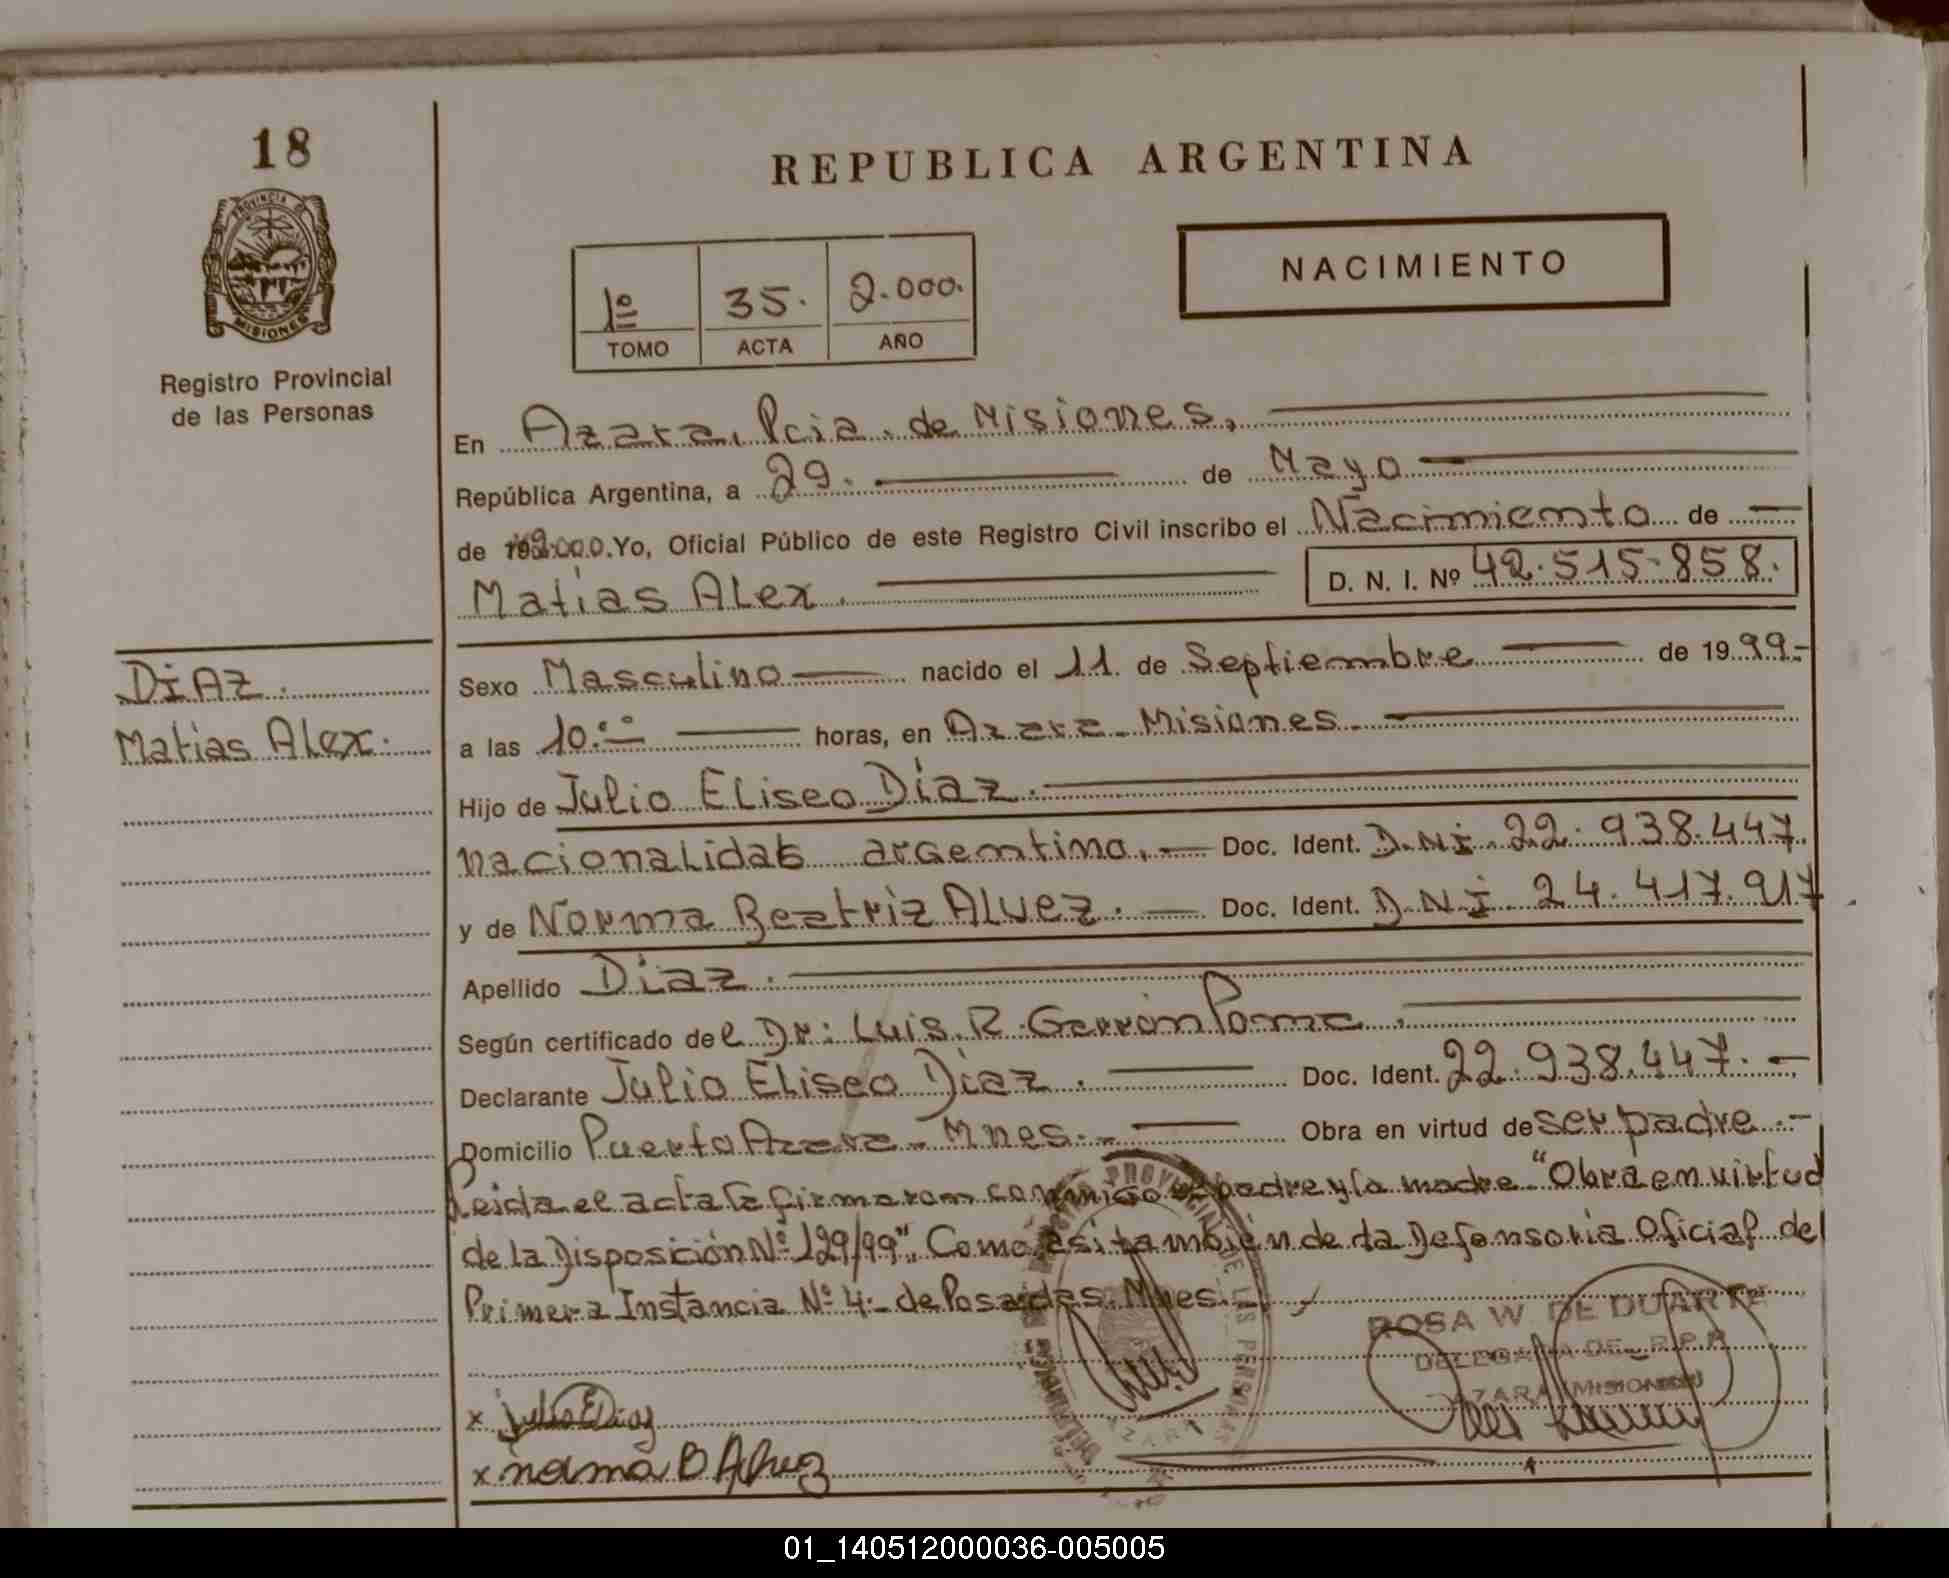 18
REPUBLICA ARGENTINA
PROVINCIA DE
MISIONES
Registro Provincial
de las Personas
1º 35. 2.000.
TOMO ACTA AÑO
NACIMIENTO
En Azara, Pcia. de Misiones,
República Argentina, a 29. de Mayo
de 2.000. Yo, Oficial Público de este Registro Civil inscribo el Nacimiento de
Matias Alex. D. N. I. Nº 42.515.858.
DiAz.
Matias Alex.
Sexo Masculino nacido el 11 de Septiembre de 1999.-
a las 10. horas, en Azara - Misiones.
Hijo de Julio Eliseo Diaz.
nacionalidad argentina. Doc. Ident. D.N.I. 22.938.447.
y de Norma Beatriz Alvez. Doc. Ident. D.N.I. 24.417.917
Apellido Diaz.
Según certificado del Dr: Luis. R. Gerrón Poma.
Declarante Julio Eliseo Diaz. Doc. Ident. 22.938.447.-
Domicilio Puerto Azara - Mnes. Obra en virtud de ser padre.-
Leida el acta la firmaron conmigo el padre y la madre "Obra en virtud
de la Disposición Nº 129/99", Como asi tambien de la Defensoria Oficial de
Primera Instancia Nº 4.- de Posadas. Mnes.
ROSA W. DE DUARTE
DELEGADA DE R.P.P.
AZARA (MISIONES)
x Julio E Diaz
x norma B Alvez
AZARA
01_140512000036-005005